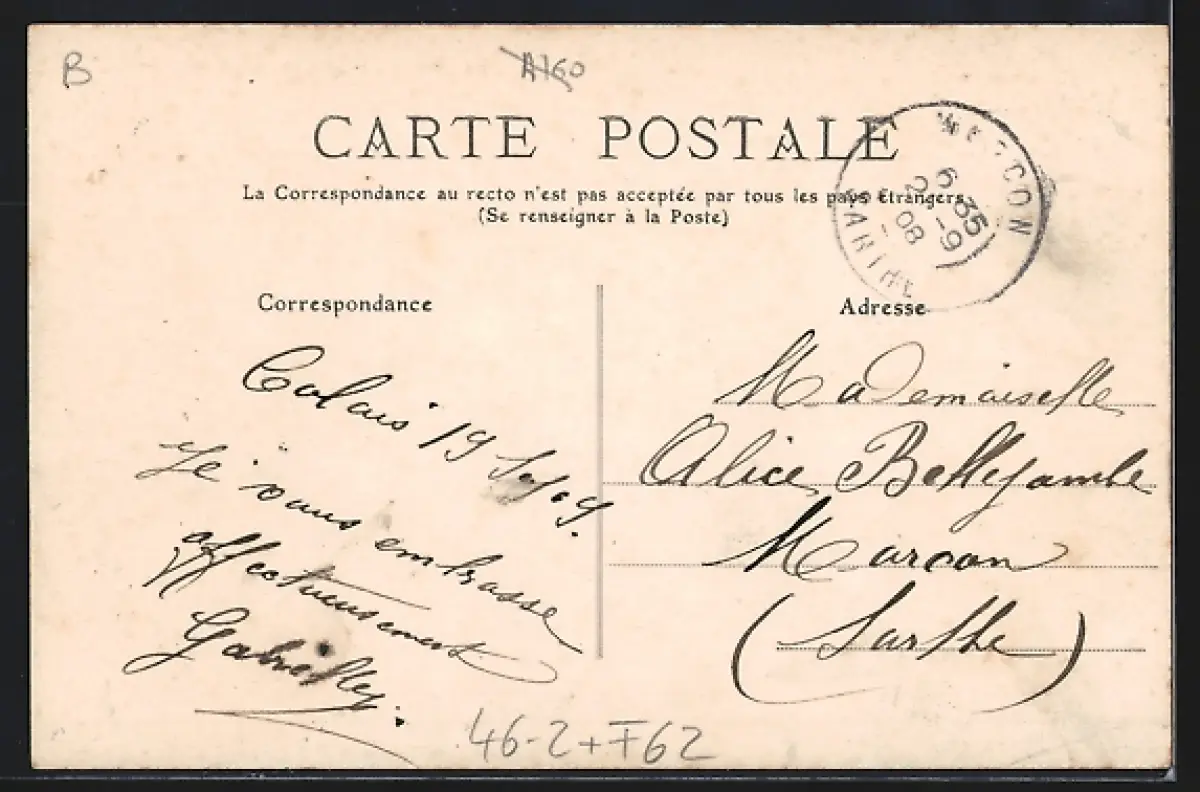 B
A160
CARTE POSTALE
La Correspondance au recto n'est pas acceptée par tous les pays étrangers
(Se renseigner à la Poste)
6 35
2 -9
08
SARTHE
Correspondance
Adresse
Calais 19
Je vous embrasse
affectueusement
Mademoiselle
Alice Bellejambe
Marcon
(Sarthe)
46-2+F62